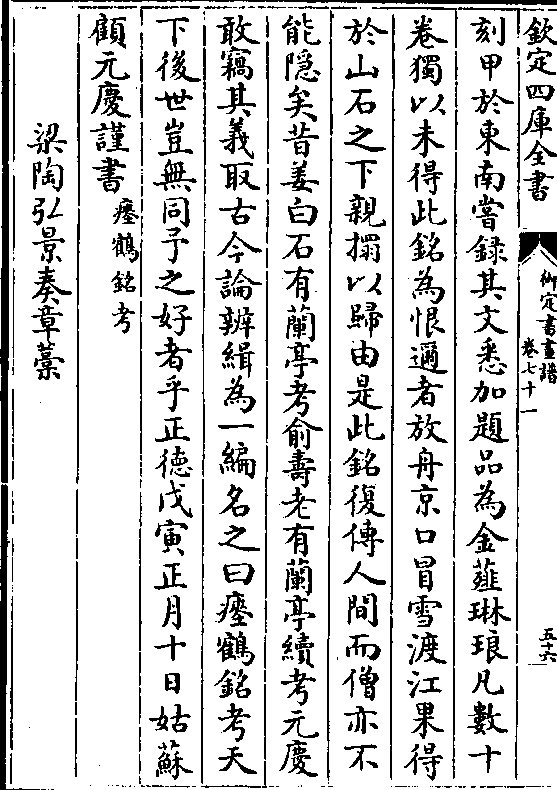 欽定四庫全書
御定書畫譜
卷七十一
五十六
刻甲於東南嘗録其文悉加題品為金薤琳琅凡數十
卷獨以未得此銘為恨邇者放舟京口冒雪渡江果得
於山石之下親搨以歸由是此銘復傳人間而僧亦不
能隠矣昔姜白石有蘭亭考俞壽老有蘭亭續考元慶
敢竊其義取古今論辨緝為一編名之曰瘞鶴銘考天
下後世豈無同予之好者乎正徳戊寅正月十日姑蘇
顧元慶謹書瘞鶴銘考
梁陶弘景奏章藁